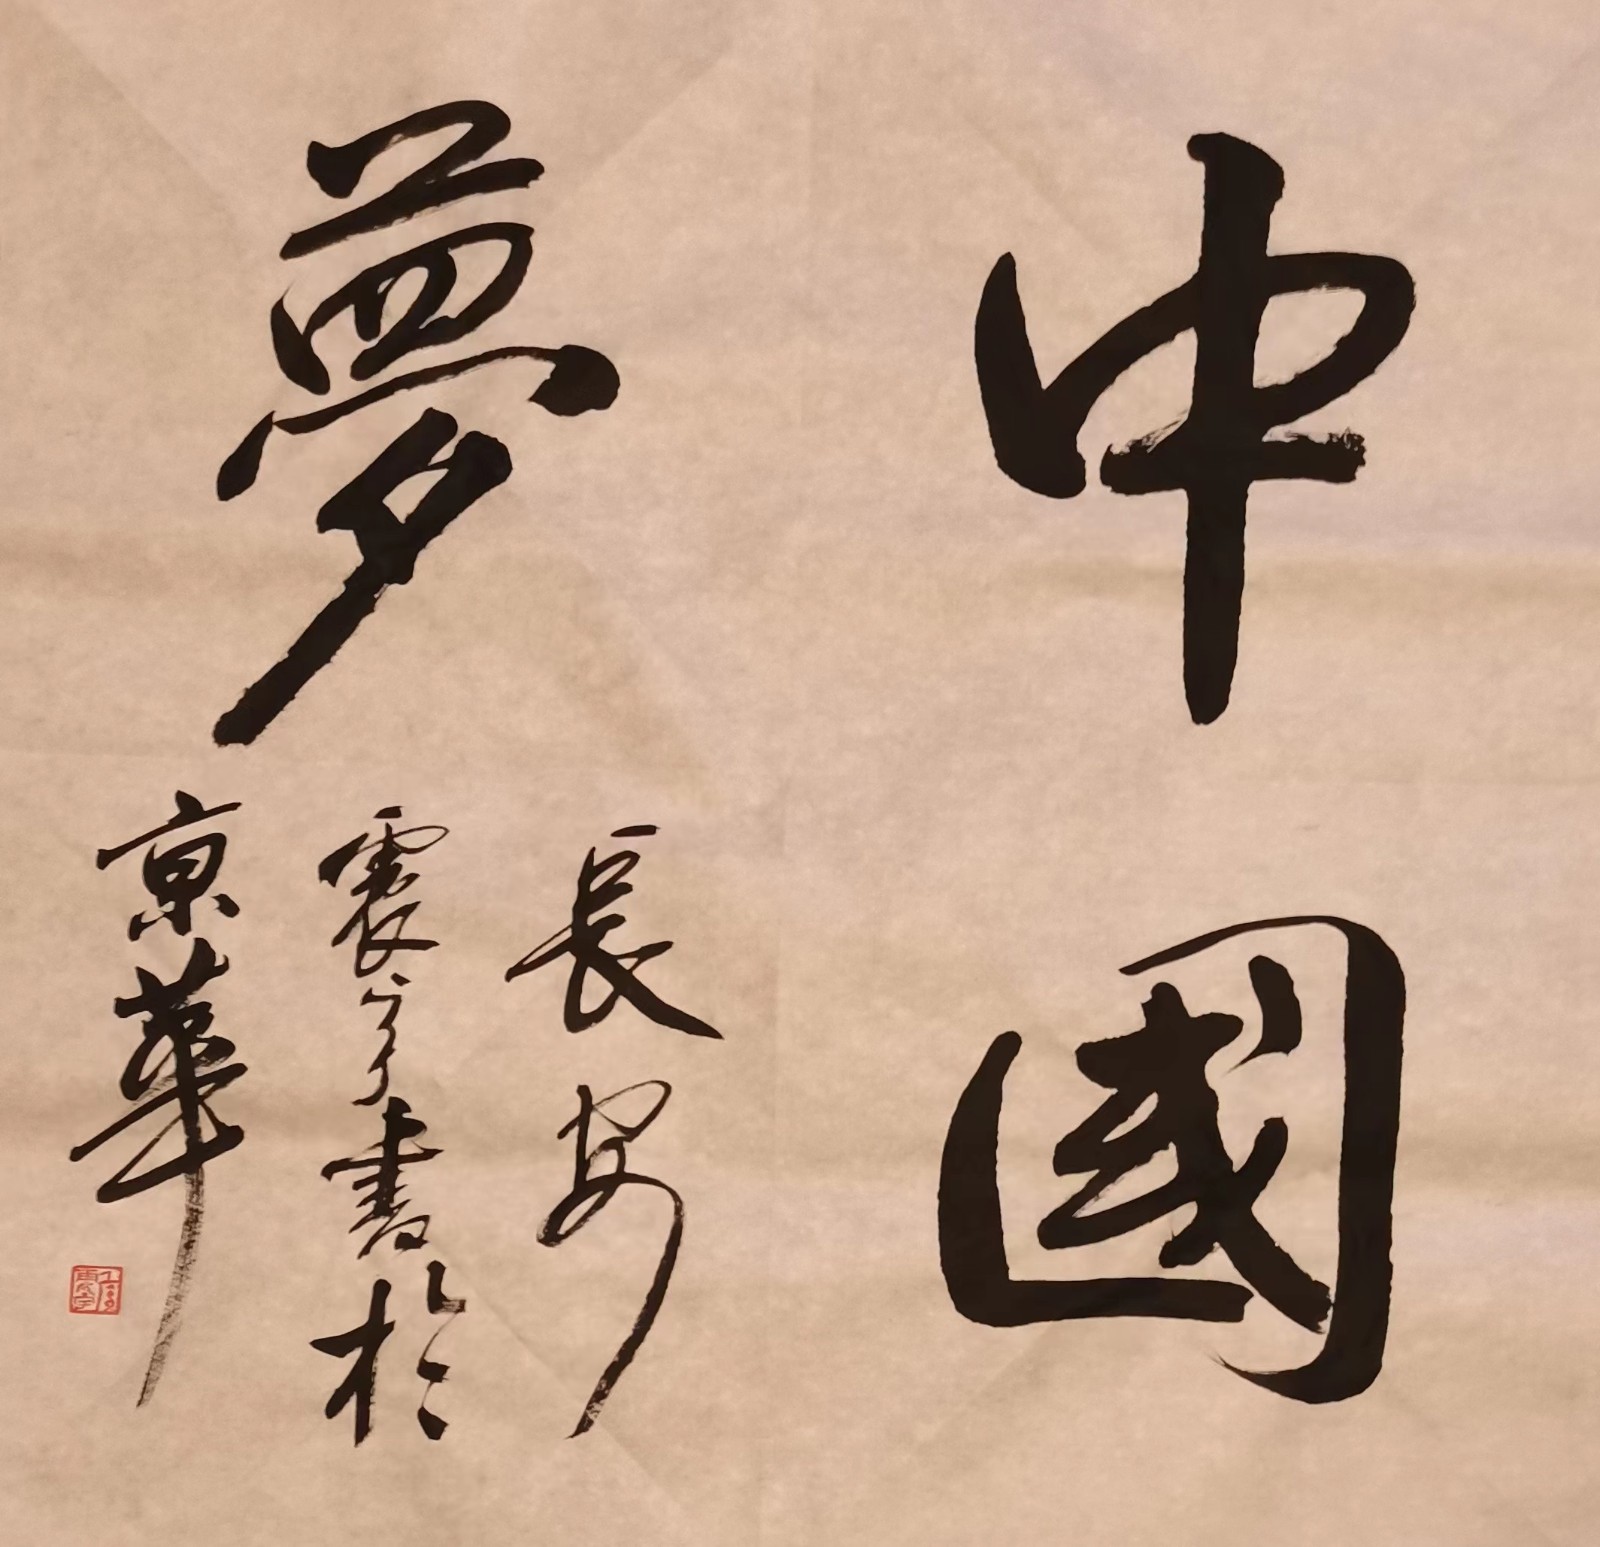 中國
夢
長安
震宇書於
京華